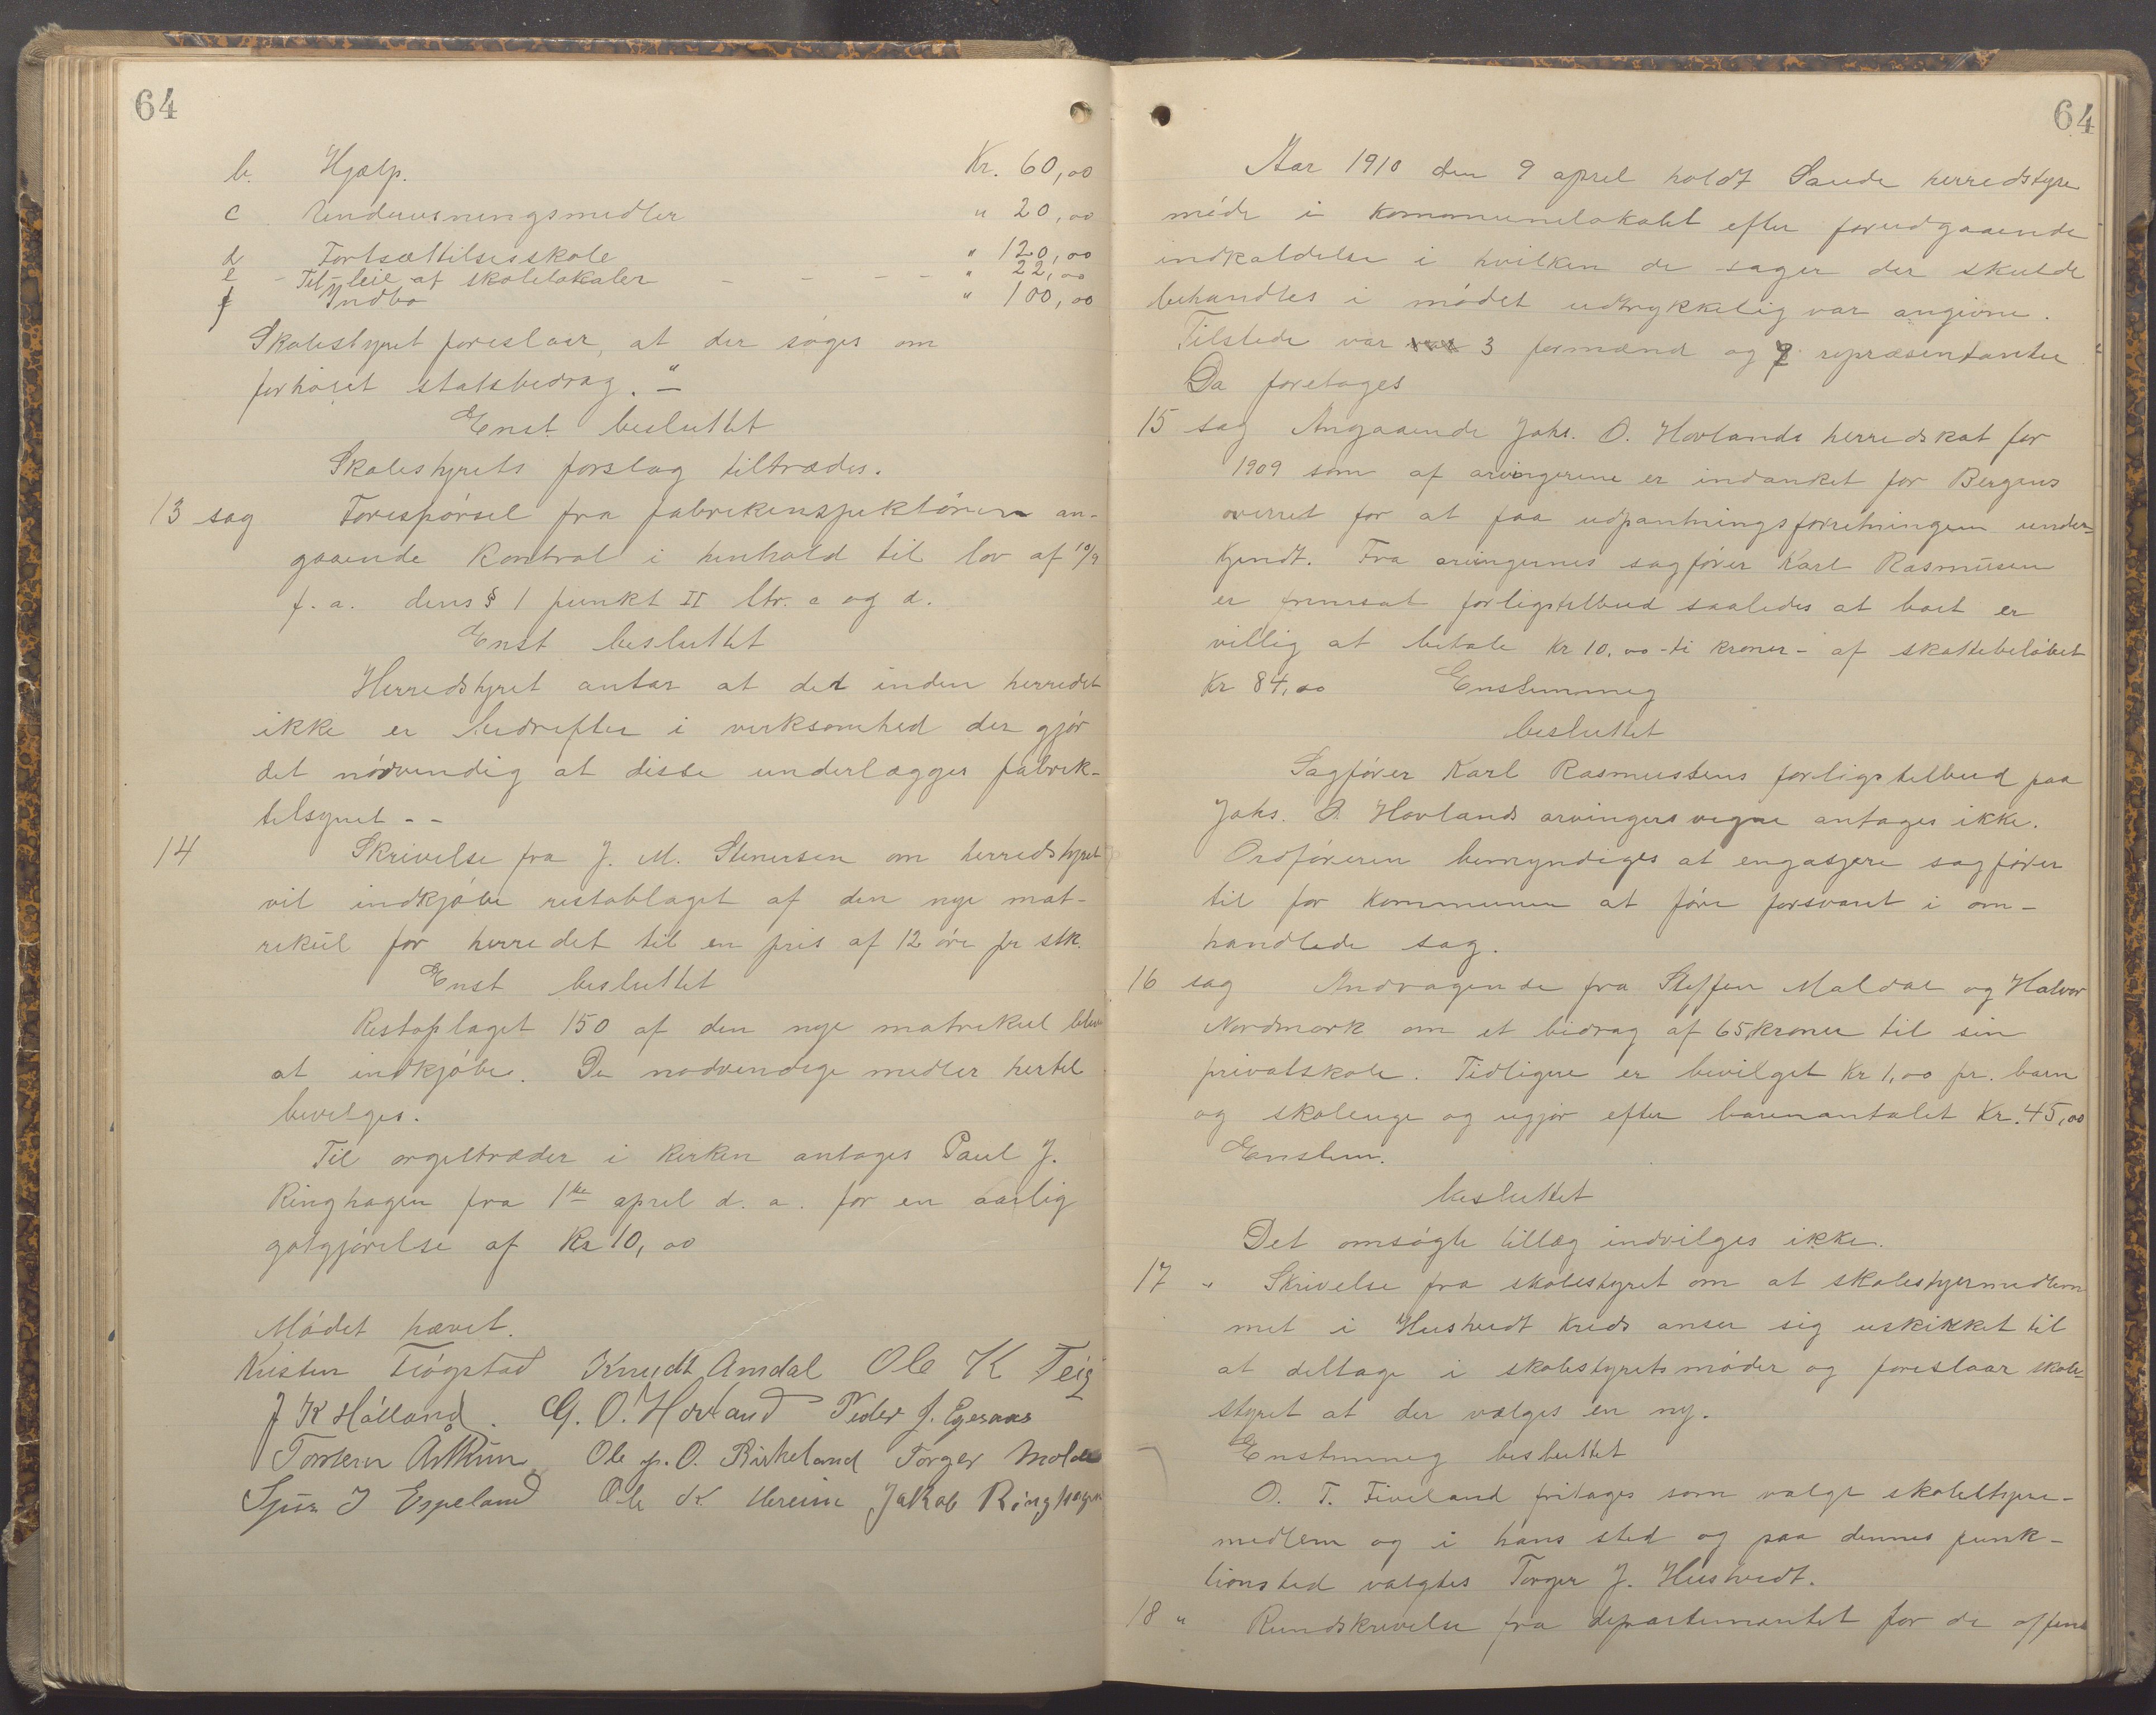 64
b. Hjælp. Kr. 60,00
c Undervisningsmidler " 20,00
d Fortsættelsesskole " 120,00
e - Til leie af skolelokaler - - - - " 22,00
f Indbo " 100,00
Skolestyret foreslaar, at der søges om
forhøiet statsbidrag. " -
Enst. besluttet
Skolestyrets forslag tiltrædes.
13 sag Forespørsel fra fabrikinspektøren an-
gaaende kontrol i henhold til lov af 10/9
f. a. dens § 1 punkt II ltr. a og d.
Enst besluttet
Herredstyret antar at det inden herredet
ikke er bedrifter i virksomhed der gjør
det nødvendig at disse underlægges fabrik-
tilsynet - -
14 Skrivelse fra J. M. Stenersen om herredstyret
vil indkjøbe restoblaget af den nye mat-
rikül for herredet til en pris af 12 øre pr stk.
Enst besluttet
Restoplaget 150 af den nye matrikul
at indkjøbe. De nødvendige midler hertil
bevilges.
Til orgeltræder i kirken antages Paul J.
Ringhagen fra 1ste april d. a. for en aarlig
gotgjørelse af Kr 10,00
Mødet hævet.
Kristen Fiøgstad Knudt Amdal Ole K Teig
J K Hålland. G. O. Hovland Peder J. Egesnes
Torstein Ole J. O. Birkeland Torger Molde
J Espeland Ole K. Hereim Jakob Ringhagen
64
Aar 1910 den 9 april holdt Saude herredstyre
møde i kommunelokalet efter forudgaaende
indkaldelse i hvilken de sager der skulde
behandles i mødet udtrykkelig var angivne.
Tilstede var 3 formænd og 9 repræsentanter
Da foretages
15 sag Angaaende Johs. O. Hovlands herredskat for
1909 som af arvingerne er indanket for Bergens
overret for at faa udpantningsforretningen under-
kjendt. Fra arvingernes sagfører Karl Rasmüsen
er fremsat forligstilbud saaledes at boet er
villig at betale Kr 10,00 - ti kroner - af skattebeløbet
Kr 84,00 Enstemmig
besluttet
Sagfører Karl Rasmussens forligstilbud paa
Johs. O. Hovlands arvingers vegne antages ikke.
Ordføreren bemyndiges at engasjere sagfører
til for kommunen at føre forsvaret i om-
handlede sag.
16 sag Andragende fra Steffen Maldal og Halvor
Nordmork om et bidrag af 65 kroner til sin
privatskole. Tidligere er bevilget Kr 1,00 pr. barn
og skoleuge og ugjør efter barnantalet Kr. 45,00
Enstem.
besluttet
Det omsøgte tillæg indvilges ikke.
17 " Skrivelse fra skolestyret om at skolestyremedlem
met i Hustvedt kreds anser sig uskikket til
at deltage i skolestyrets møder og foreslaar skole-
styret at der vælges en ny.
Enstemmig besluttet
O. T. Fiveland fritages som valgt skolestyre-
medlem og i hans sted og paa dennes funk-
tionstid valgtes Torger J. Hustvedt.
18 " Rundskrivelse fra departementet for de offent